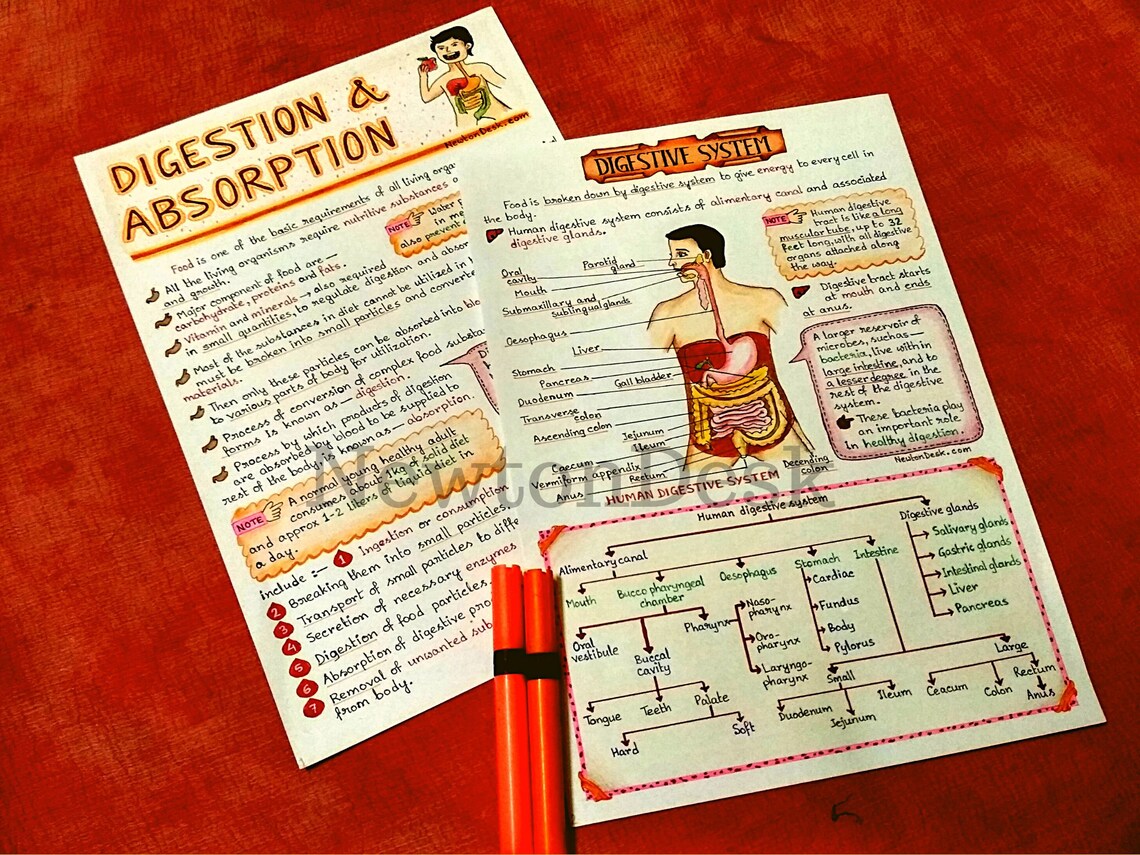 DIGESTION &
ABSORPTION
NewtonDesk.com
Food is one of the basic requirements of all living
All the living organisms require nutritive substances
and growth.
Major component of food are —
carbohydrate, proteins and fats.
Vitamin and minerals → also required
in small quantities, to regulate digestion and
Most of the substances in diet cannot be utilized in
must be broken into small particles and
materials.
Then only these particles can be absorbed into
to various parts of body for utilization.
Process of conversion of complex food
forms is known as — digestion.
Process by which products of digestion
are absorbed by blood to be supplied to
rest of the body is known as — absorption.
NOTE
Water
in
also prevent
NOTE
A normal young healthy adult
consumes about 1 kg of solid diet
and approx 1-2 liters of liquid diet in
a day.
include :- 1 Ingestion or consumption
2 Breaking them into small particles.
3 Transport of small particles to
4 Secretion of necessary enzymes
5 Digestion of food particles.
6 Absorption of digestive
7 Removal of unwanted
from body.
DIGESTIVE SYSTEM
Food is broken down by digestive system to give energy to every cell in
the body.
Human digestive system consists of alimentary canal and associated
digestive glands.
NOTE
Human digestive
tract is like a long
muscular tube, up to 32
feet long, with all digestive
organs attached along
the way.
Digestive tract starts
at mouth and ends
at anus.
A larger reservoir of
microbes, such as -
bacteria, live within
large intestine, and to
a lesser degree in the
rest of the digestive
system.
These bacteria play
an important role
in healthy digestion.
NewtonDesk.com
Oral
cavity
Parotid
gland
Mouth
Submaxillary and
sublingual glands
Oesophagus
Liver
Stomach
Pancreas
Gall bladder
Duodenum
Transverse
colon
Ascending colon
Jejunum
Ileum
Caecum
Vermiform appendix
Rectum
Decending
colon
Anus
HUMAN DIGESTIVE SYSTEM
NewtonDesk
Human digestive system
Alimentary canal
Digestive glands
Salivary glands
Gastric glands
Intestinal glands
Liver
Pancreas
Mouth
Bucco pharyngeal
chamber
Oesophagus
Stomach
Intestine
Cardiac
Fundus
Body
Pylorus
Oral
vestibule
Buccal
cavity
Pharynx
Naso-
pharynx
Oro-
pharynx
Laryngo-
pharynx
Small
Large
Tongue
Teeth
Palate
Hard
Soft
Duodenum
Jejunum
Ileum
Ceacum
Colon
Rectum
Anus